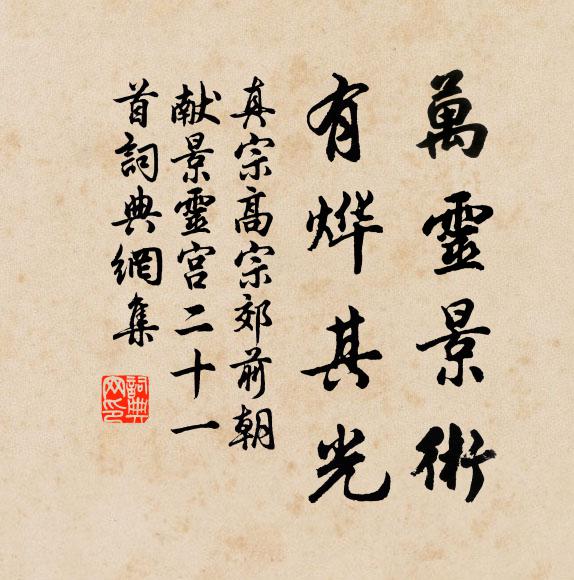 萬靈景術
有烨其光
真宗高宗郊前朝
献景靈宫二十一
首詞典網集
詞典网印